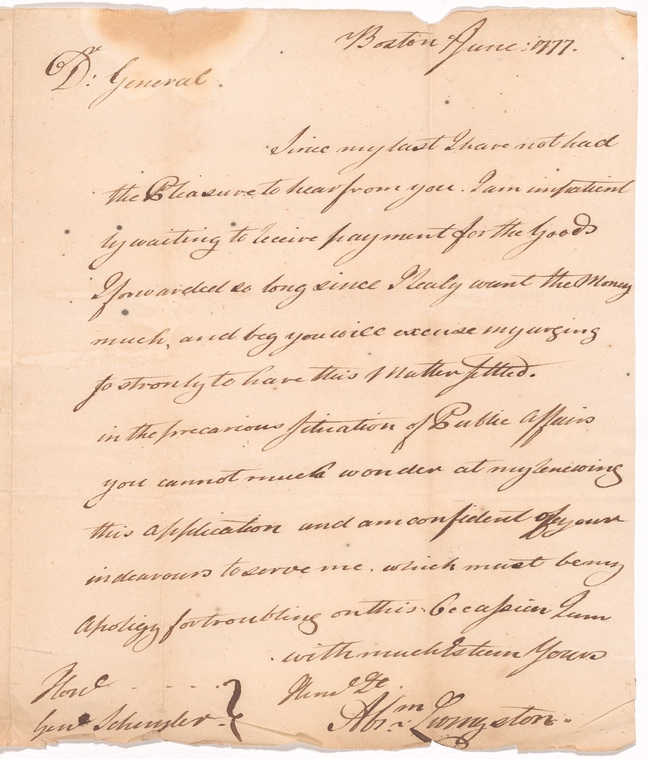 Boston June: 1777.
Dr: General.
Since my last I have not had
the Pleasure to hear from you. I am impatient
by waiting to receive payment for the Goods
I forwarded so long since I realy want the Money
much, and beg you will excuse my urging
so stronly to have this Matter settled.
in the precarious situation of Public Affairs
you cannot much wonder at my renewing
this application and am confident of your
indeavours to serve me. which must be my
Apoligy for troubling on this Occassion I am
with much Esteem Yours
Hond
Genl Schuyler.
Abrm Livingston.